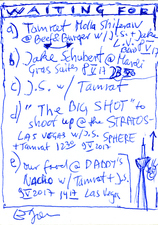 WAITING FOR
a) Tamrat Molla Shiferaw
@ Beef & Burger w/ J.S. + Jake
b) Jake Schubert @ Mardi
Gras Suites 8 V 17
c) J.S. w/ Tamrat
d) "The BIG SHOT" to
shoot up @ the STRATOS-
LAS VEGAS w/ J.S. SPHERE
+ Tamrat 12 30 9 V 2017
e) our food @ DADDY'S
Nacho w/ Tamrat + J.S.
9 V 2017 14 17 Las Vegas